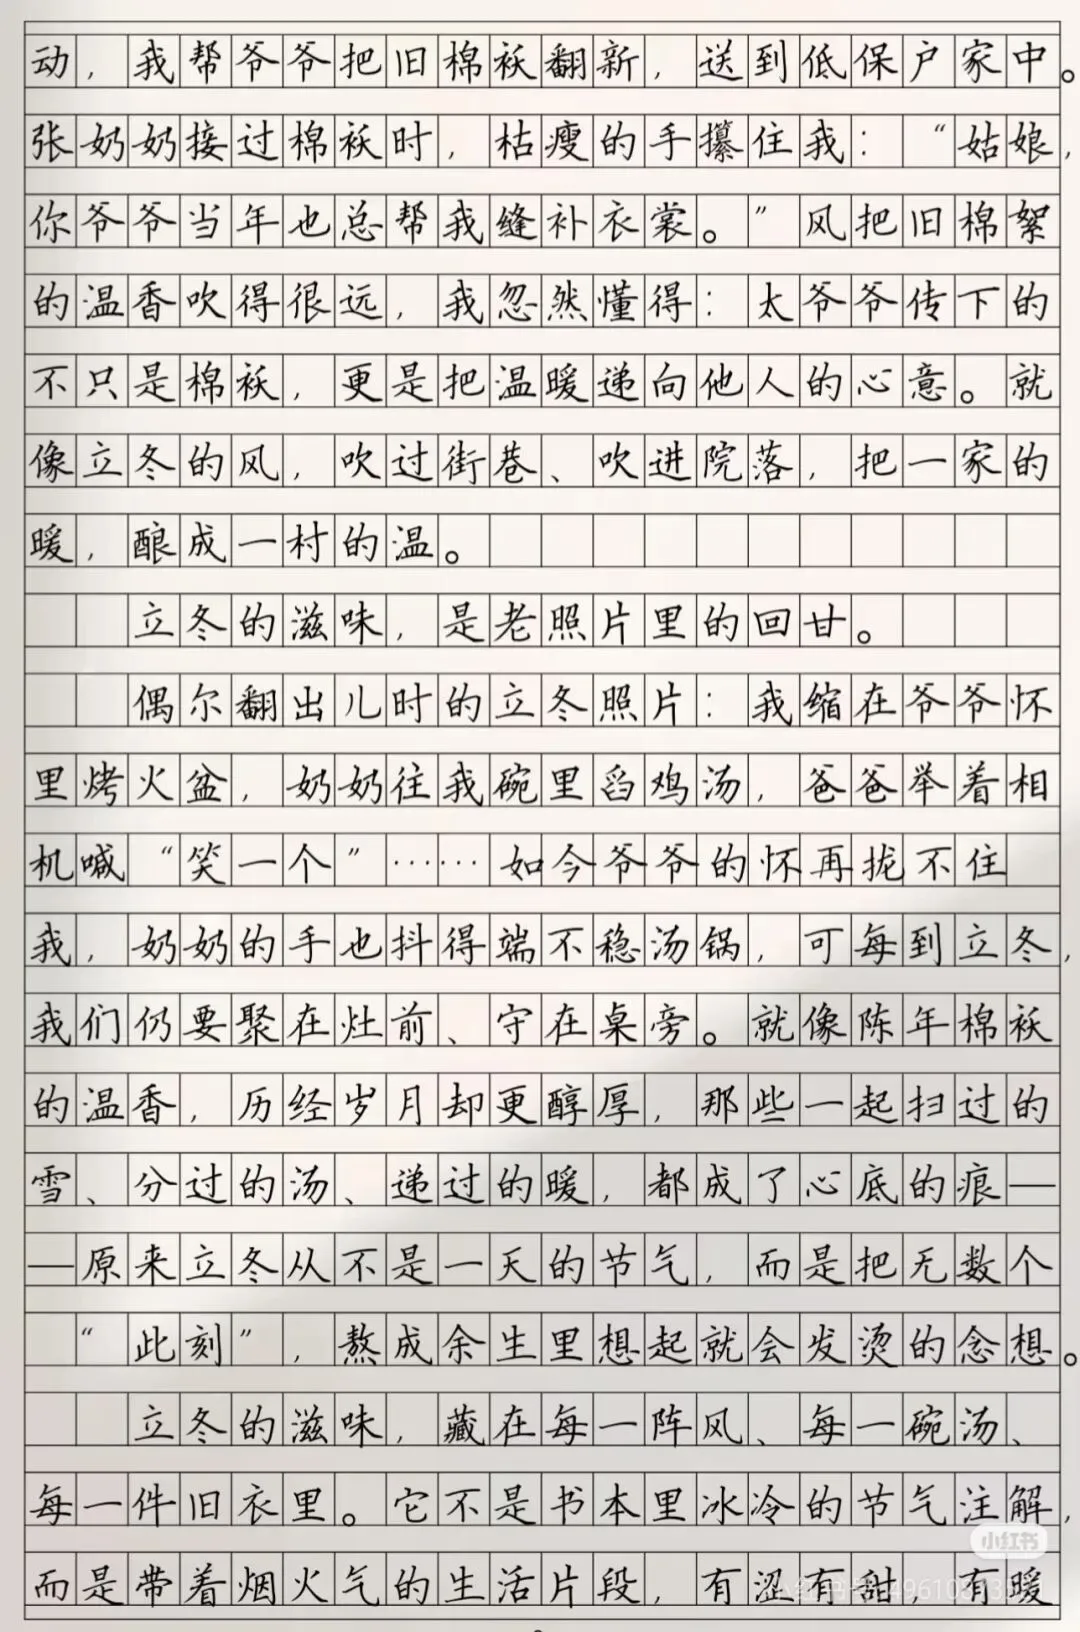 动，我帮爷爷把旧棉袄翻新，送到低保户家中。
张奶奶接过棉袄时，枯瘦的手攥住我：“姑娘，
你爷爷当年也总帮我缝补衣裳。”风把旧棉絮
的温香吹得很远，我忽然懂得：太爷爷传下的
不只是棉袄，更是把温暖递向他人的心意。就
像立冬的风，吹过街巷、吹进院落，把一家的
暖，酿成一村的温。
立冬的滋味，是老照片里的回甘。
偶尔翻出儿时的立冬照片：我缩在爷爷怀
里烤火盆，奶奶往我碗里舀鸡汤，爸爸举着相
机喊“笑一个”……如今爷爷的怀再拢不住
我，奶奶的手也抖得端不稳汤锅，可每到立冬，
我们仍要聚在灶前、守在桌旁。就像陈年棉袄
的温香，历经岁月却更醇厚，那些一起扫过的
雪、分过的汤、递过的暖，都成了心底的痕—
—原来立冬从不是一天的节气，而是把无数个
“此刻”，熬成余生里想起就会发烫的念想。
立冬的滋味，藏在每一阵风、每一碗汤、
每一件旧衣里。它不是书本里冰冷的节气注解，
而是带着烟火气的生活片段，有涩有甜，有暖
小红书